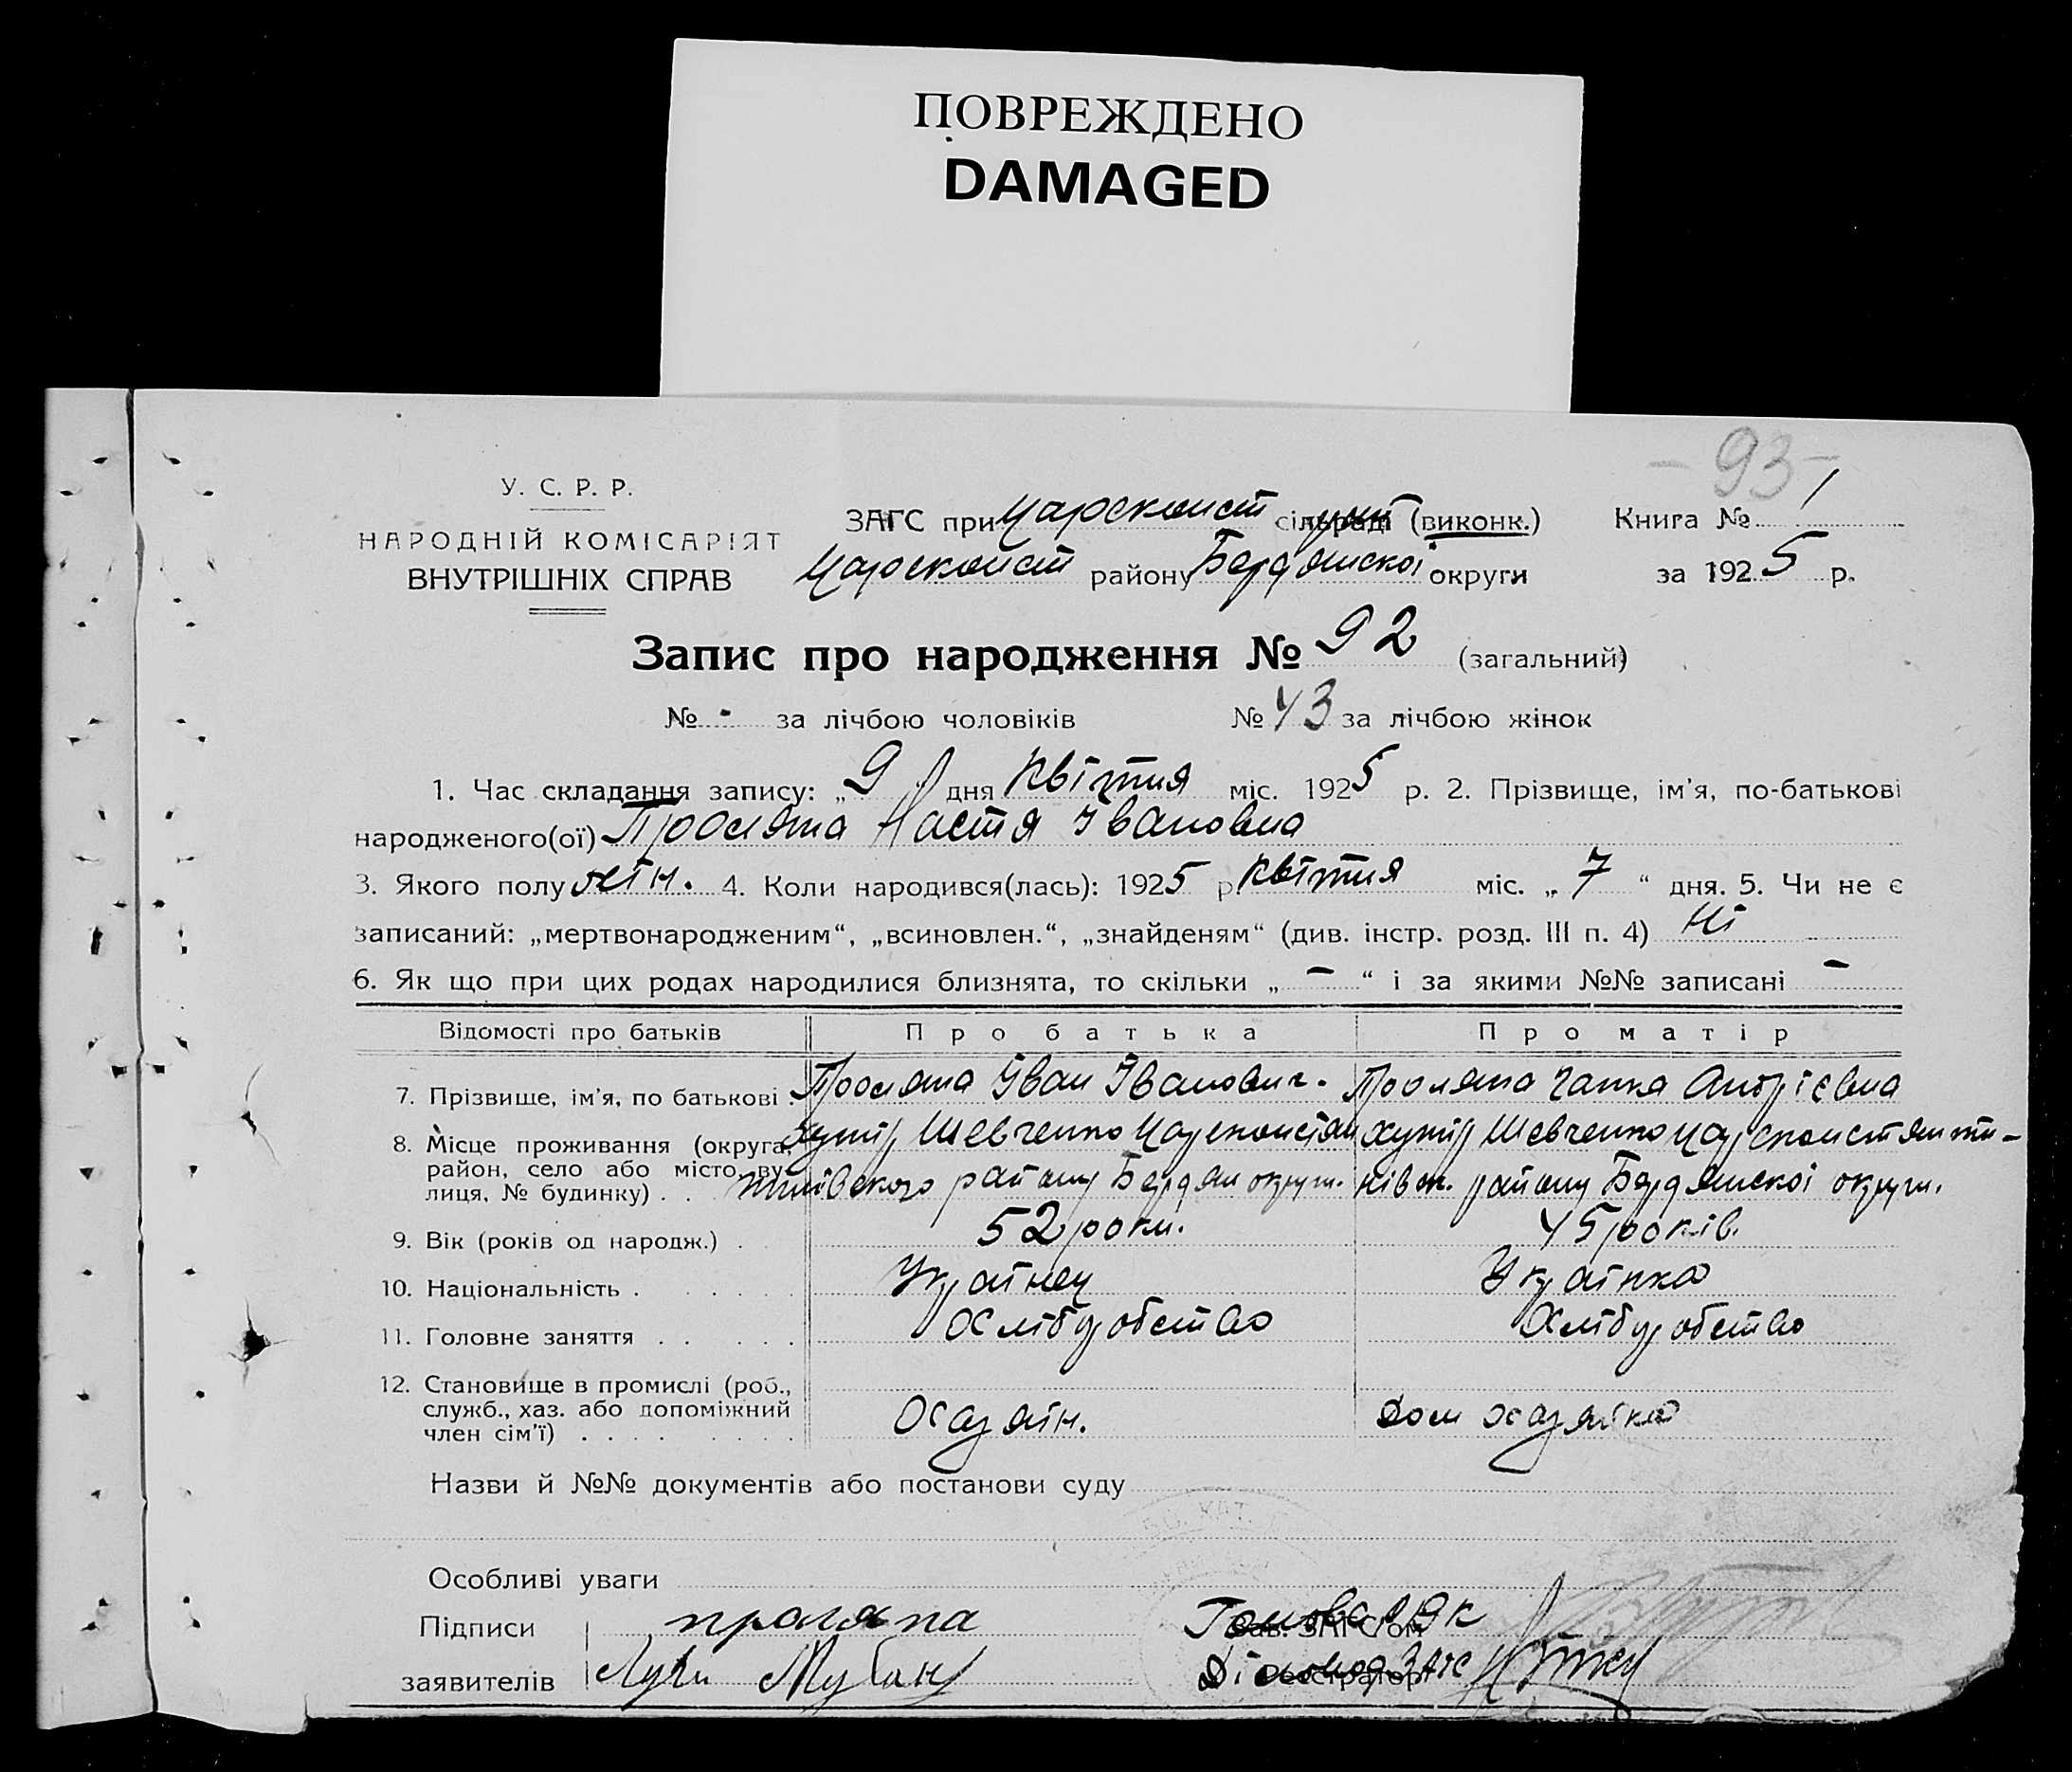 ПОВРЕЖДЕНО
DAMAGED
- 93 -
У. С. Р. Р.
НАРОДНІЙ КОМІСАРІЯТ
ВНУТРІШНІХ СПРАВ
ЗАГС при Царсконст сільраді (виконк.) Книга № 1
Царсконст району Бердянської округи за 1925 р.
Запис про народження № 92 (загальний)
№ - за лічбою чоловіків № 43 за лічбою жінок
1. Час складання запису: „ 9 " дня Квітня міс. 1925 р. 2. Прізвище, ім'я, по-батькові
народженого(ої) Настя Івановна
3. Якого полу жін. 4. Коли народився(лась): 1925 р. Квітня міс. „ 7 “ дня. 5. Чи не є
записаний: „мертвонародженим“, „всиновлен.“, „знайденям“ (див. інстр. розд. III п. 4) Ні
6. Як що при цих родах народилися близнята, то скільки „ – “ і за якими №№ записані –
Відомості про батьків Про батька Про матір
7. Прізвише, ім'я, по батькові . Іван Іванович. Ганна Андрієвна
8. Місце проживання (округа, Хутір Шевченко Царсконстян хутір Шевченко Царсконстянти-
район, село або місто, ву- тинівского району Бердян округи. нівск. району Бердянскоі округи.
лиця, № будинку) . .
9. Вік (років од народж.) . 52 роки. 45 років.
10. Національність . . . . . . Українец Українка
11. Головне заняття . . . . Хліборобство Хліборобство
12. Становище в промислі (роб.,
служб., хаз. або допоміжний Хазяїн. Дом хазяйка
член сім'ї) . . . . . . . .
Назви й №№ документів або постанови суду
Особливі уваги
Підписи Голова РВК
Зав. ЗАГС'ом
заявителів Діловод ЗАГС
Реєстратор